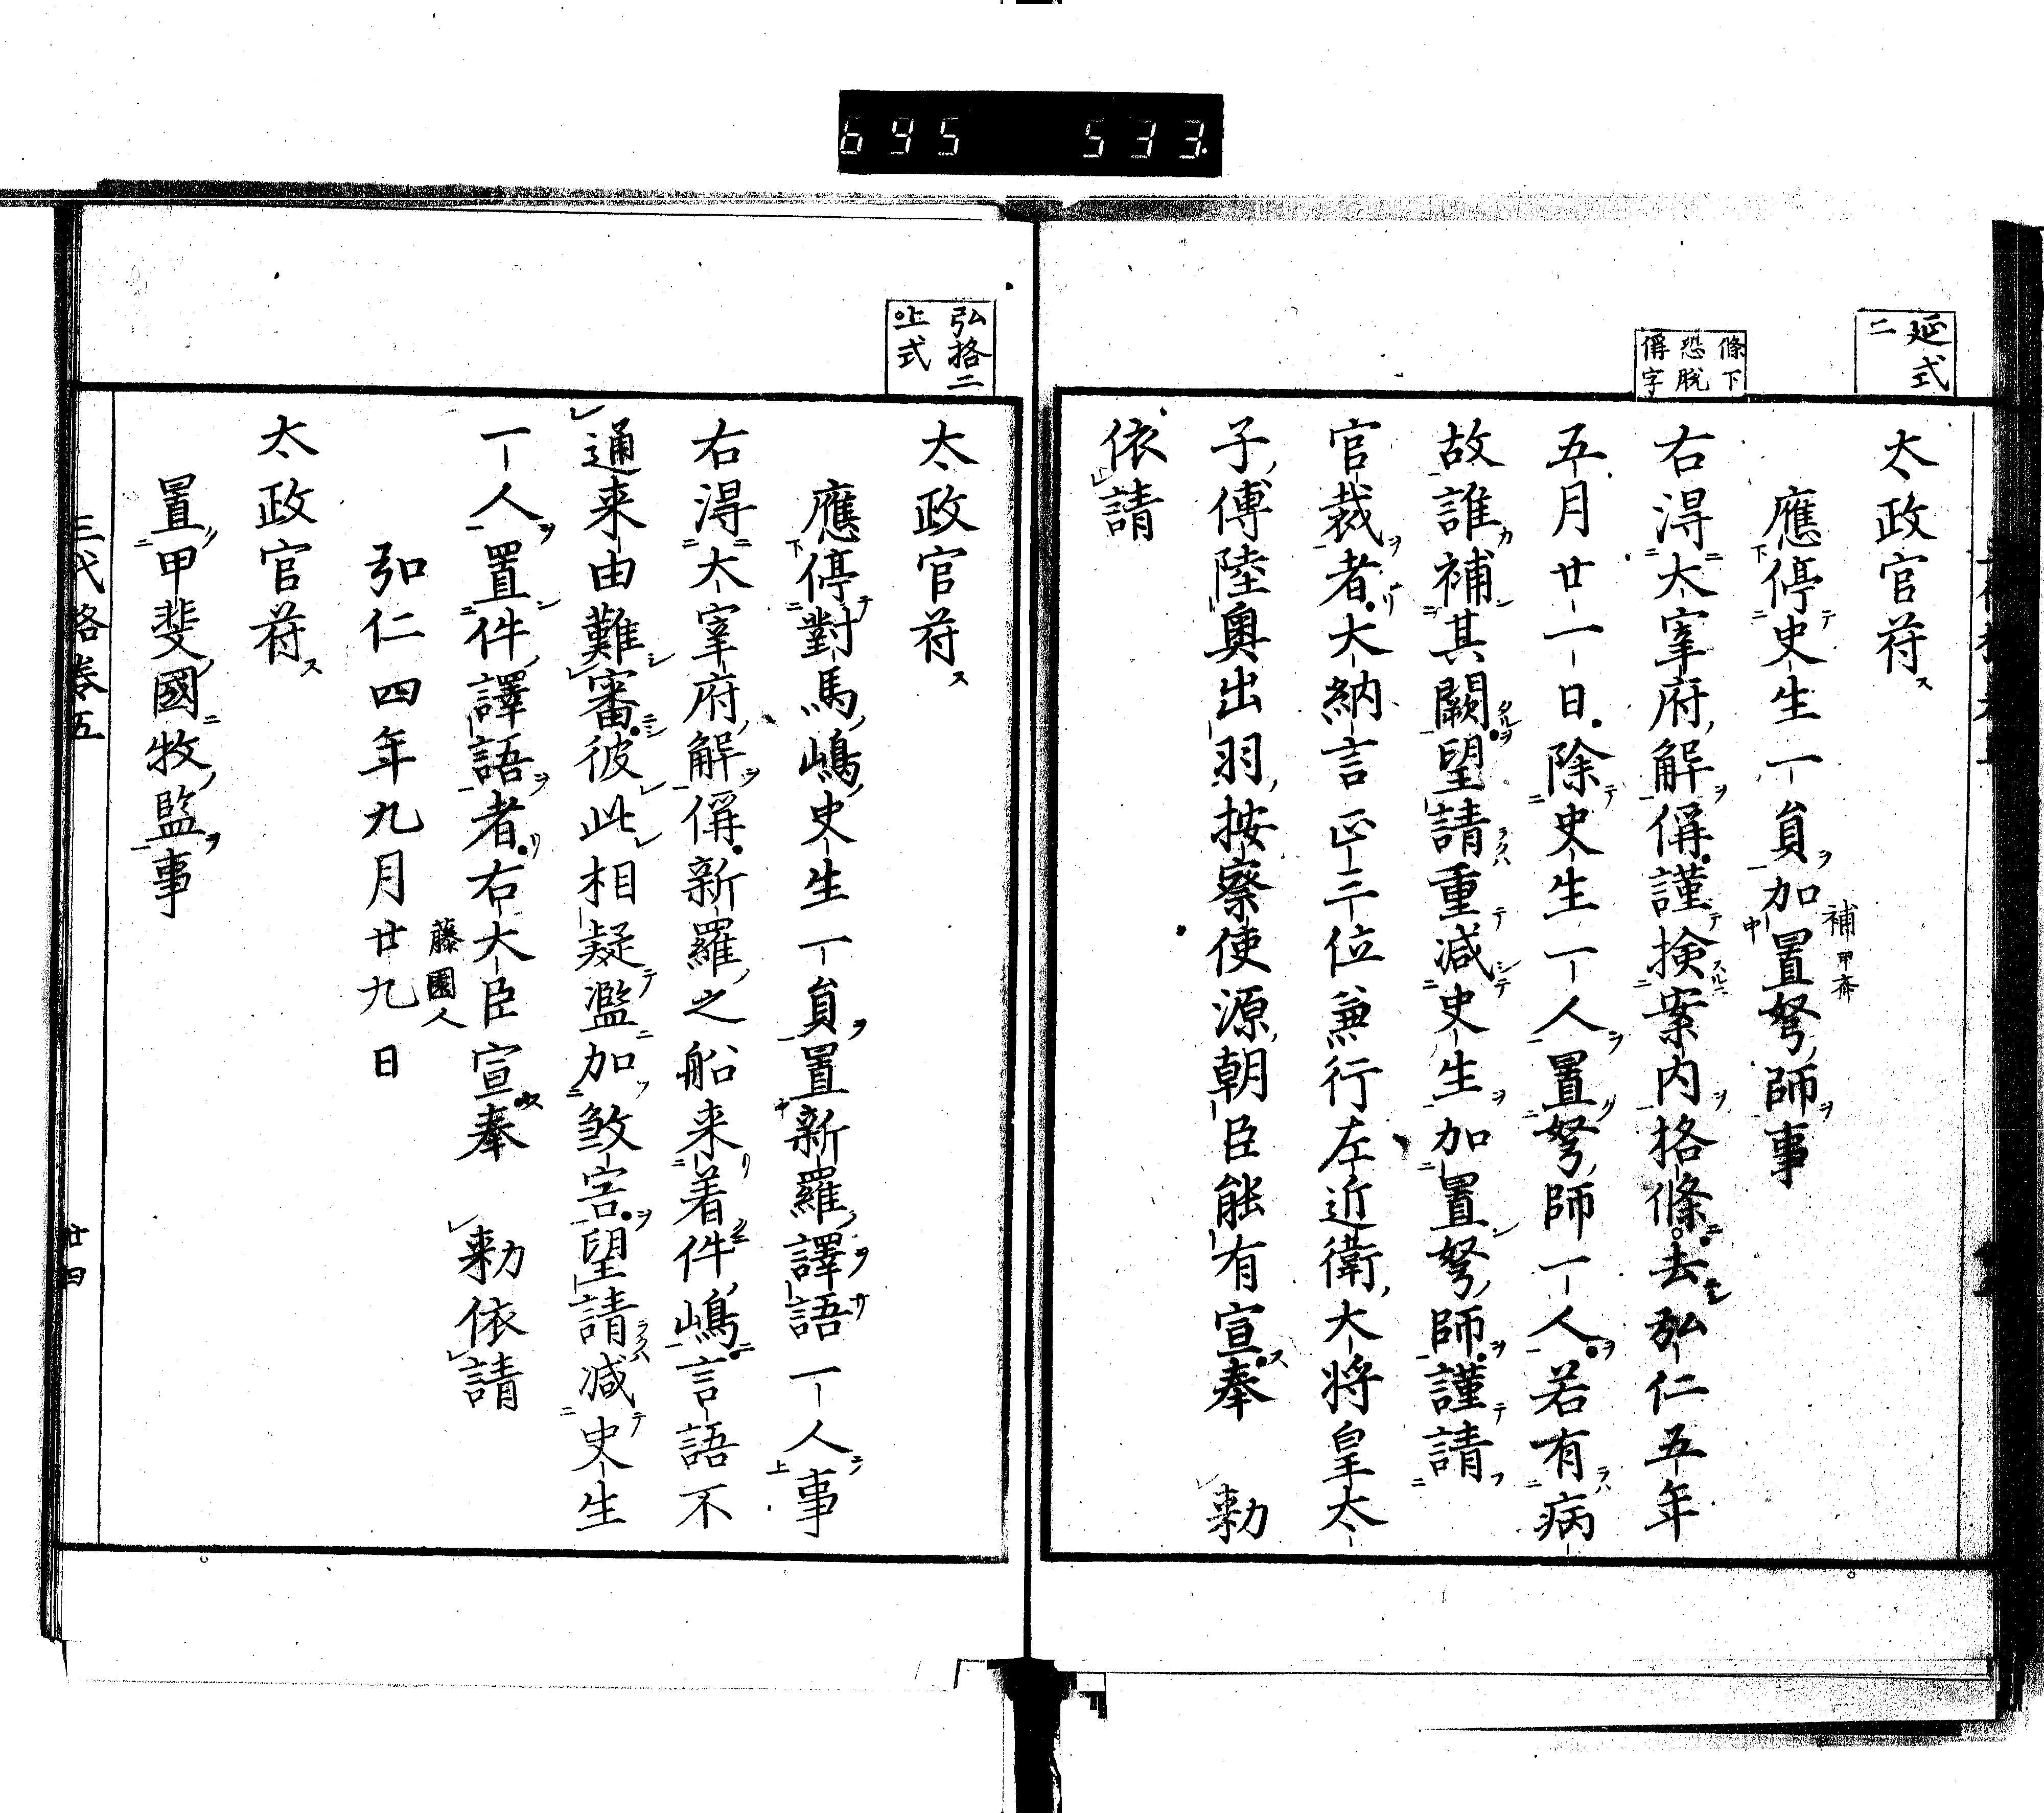 695 533
延式
二
條下
恐脱
偁字
太政官符ス
應停史生一員加置弩師事
補甲斎
右得太宰府解偁謹検案内格條去弘仁五年
五月廿一日除史生一人置弩師一人若有病
故誰補其闕望請重減史生加置弩師謹請
官裁者大納言正三位兼行左近衛大将皇太
子傅陸奥出羽按察使源朝臣能有宣奉　勅
依請
弘格二
止式
太政官符ス
應停對馬嶋史生一員置新羅譯語一人事
右得大宰府解偁新羅之船来着件嶋言語不
通来由難審彼此相疑濫加煞害望請減史生
一人置件譯語者右大臣宣奉　勅依請
藤園人
弘仁四年九月廿九日
太政官符ス
置甲斐國牧監事
三代格巻五
廿四